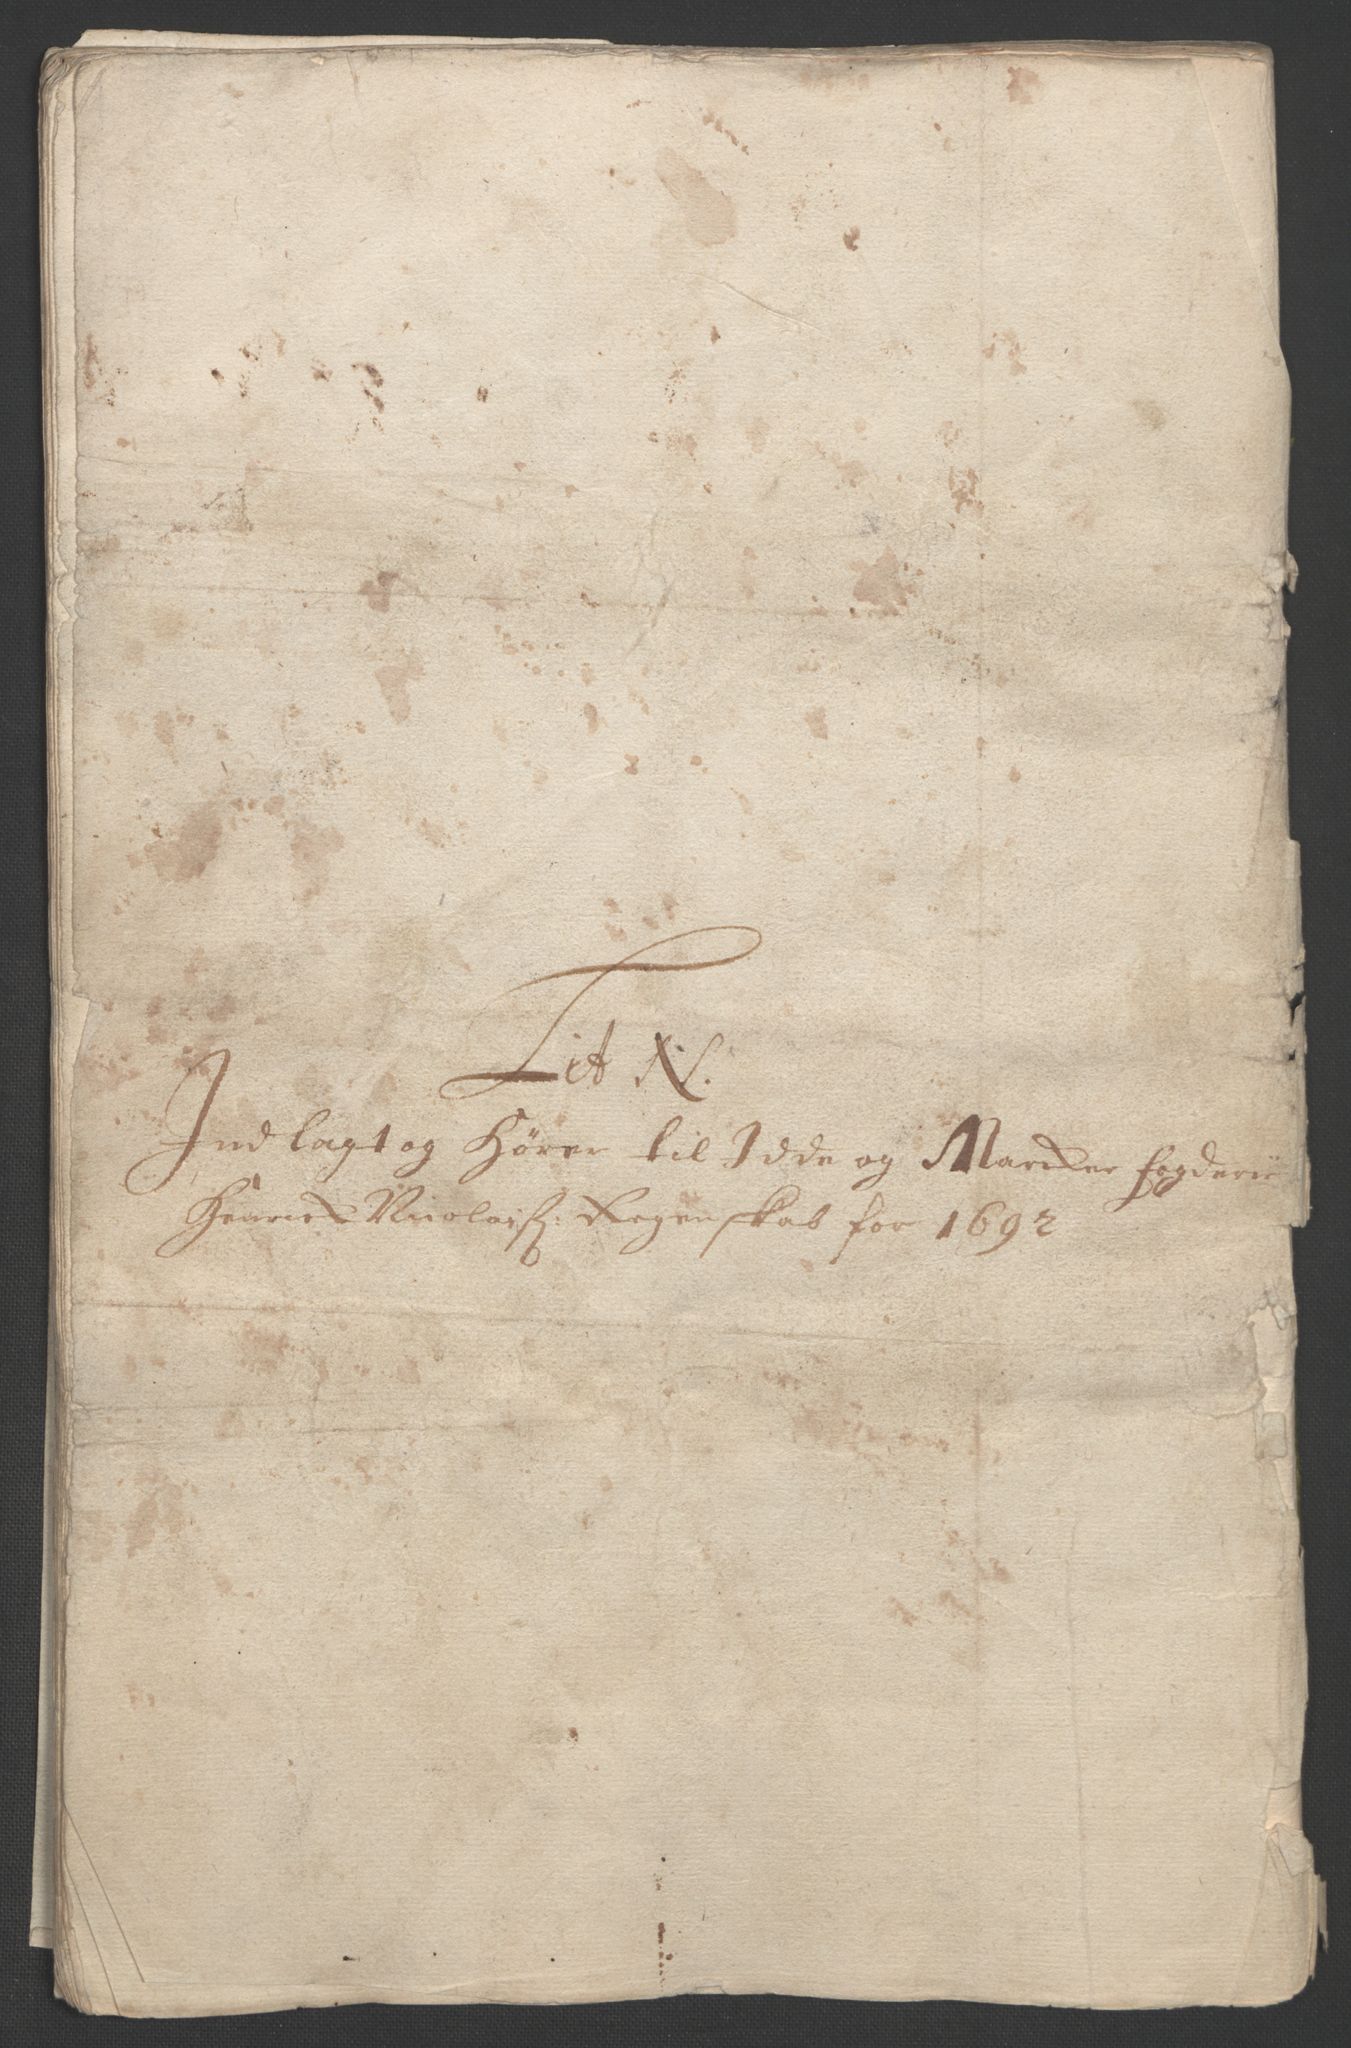 Lit N.
Indlagt og Hører til Idde og Marcker fogderie
Henrich Nicolaisß: Regenskab for 1692